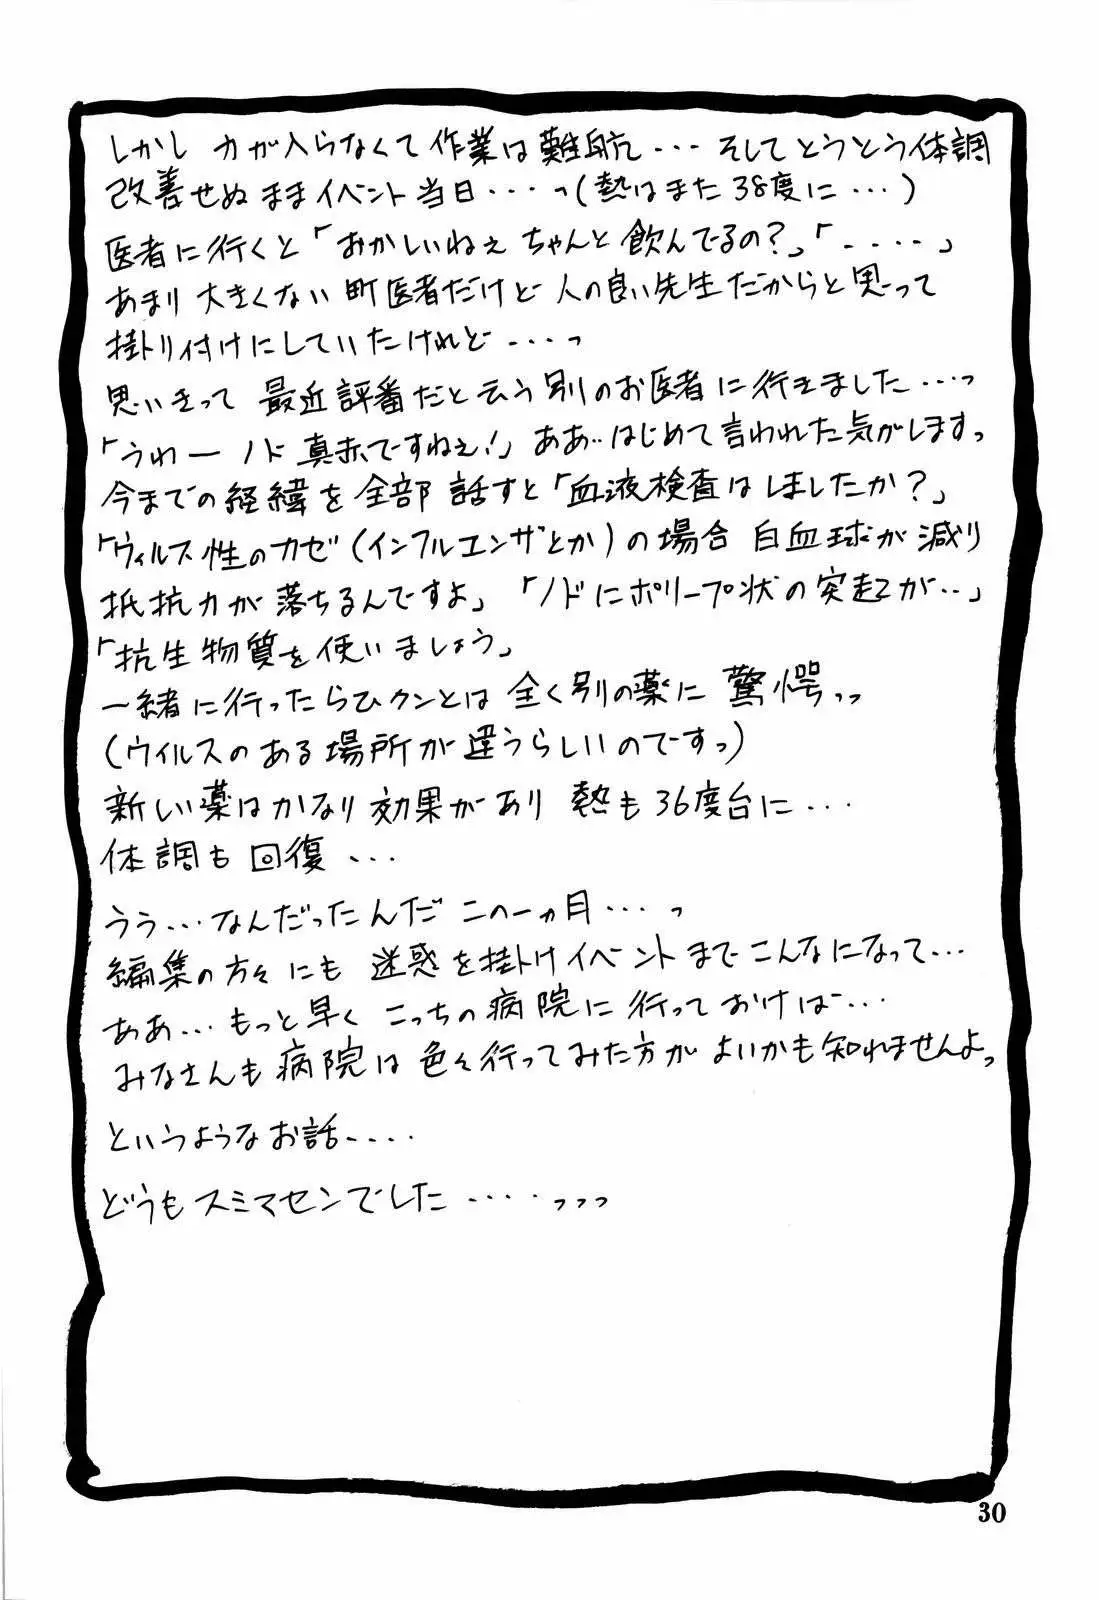 しかし 力が入らなくて作業は難航・・・ そしてとうとう体調
改善せぬままイベント当日・・・・っ(熱はまた38度に・・・)
医者に行くと「おかしいねぇ ちゃんと飲んでるの？」「・・・・」
あまり大きくない町医者だけど人の良い先生だからと思って
掛トリ付けにしていたけれど・・・・っ
思いきって 最近評番だと云う別のお医者に行きました・・・っ
「うわーノド真赤ですねぇ！」ああ・・はじめて言われた気がしますっ
今までの経緯を全部話すと「血液検査はしましたか？」
「ウィルス性のカゼ(インフルエンザとか)の場合 白血球が減り
抵抗力が落ちるんですよ」「ノドにポリープ状の突起が・・」
「抗生物質を使いましょう」
一緒に行ったらひクンとは全く別の薬に驚愕っっ
(ウイルスのある場所が違うらしいのですっ)
新しい薬はかなり効果があり 熱も36度台に・・・
体調も回復・・・
うう・・・なんだったんだこの一ヵ月・・・・っ
編集の方々にも迷惑を掛けイベントまでこんなになって・・・
ああ・・・もっと早くこっちの病院に行っておけば・・・
みなさんも病院は色々行ってみた方がよいかも知れませんよっ
というようなお話・・・・
どうもスミマセンでした・・・・・っっっ
30